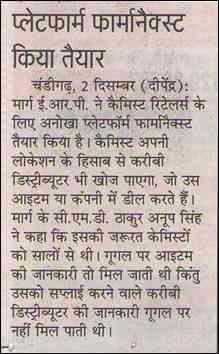 प्लेटफार्म फार्मानैक्स्ट
किया तैयार
चंडीगढ़, 2 दिसम्बर (दीपेंद्र):
मार्ग ई.आर.पी. ने कैमिस्ट रिटेलर्स के
लिए अनोखा प्लेटफॉर्म फार्मानैक्स्ट
तैयार किया है। कैमिस्ट अपनी
लोकेशन के हिसाब से करीबी
डिस्ट्रीब्यूटर भी खोज पाएगा, जो उस
आइटम या कंपनी में डील करते हैं।
मार्ग के सी.एम.डी. ठाकुर अनूप सिंह
ने कहा कि इसकी जरूरत केमिस्टों
को सालों से थी। गूगल पर आइटम
की जानकारी तो मिल जाती थी किंतु
उसको सप्लाई करने वाले करीबी
डिस्ट्रीब्यूटर की जानकारी गूगल पर
नहीं मिल पाती थी।